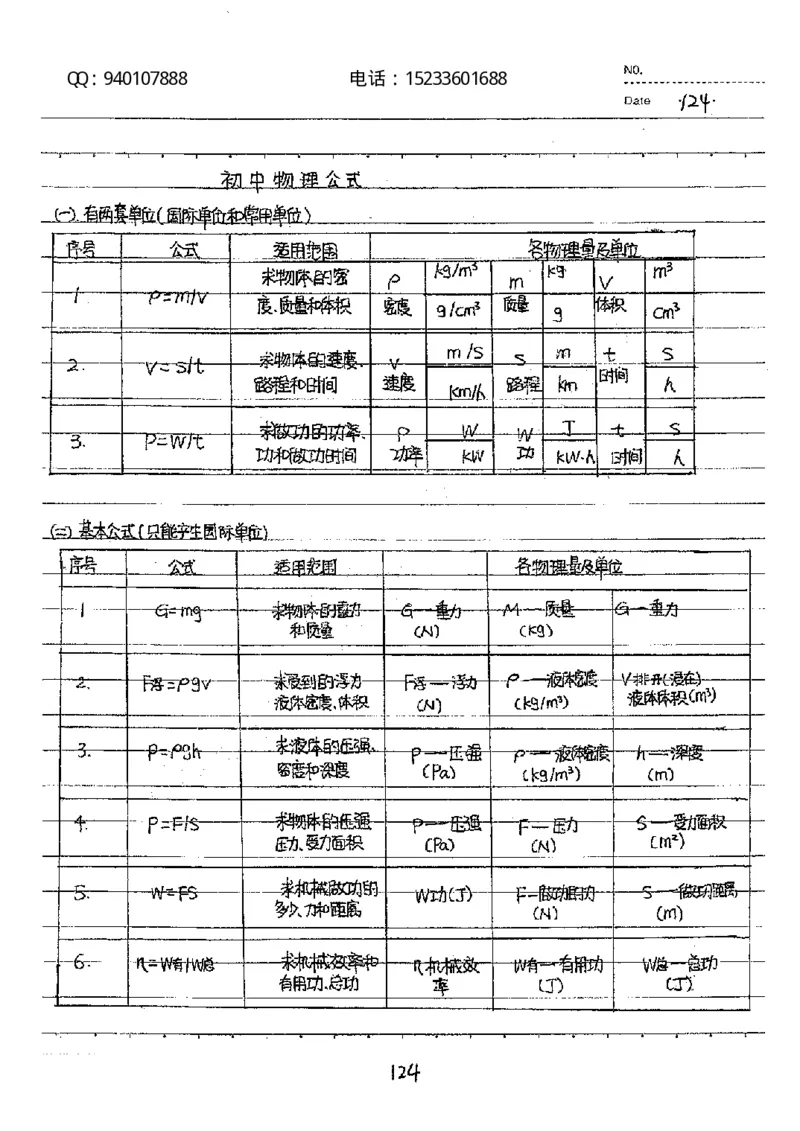 QQ：940107888 电话：15233601688 NO.
Date ·124·
初中物理公式
(一).有两套单位(国际单位和常用单位)
序号 公式 适用范围 各物理量及单位
1 ρ=m/V 求物体的密度、质量和体积 ρ 密度 kg/m³ g/cm³ m 质量 kg g V 体积 m³ cm³
2. V=S/t 求物体的速度、路程和时间 V 速度 m/s km/h S 路程 m km t 时间 S h
3. P=W/t 求做功的功率、功和做功时间 P 功率 W KW W 功 J KW·h t 时间 S h
(二)基本公式(只能产生国际单位)
序号 公式 适用范围 各物理量及单位
1 G=mg 求物体的重力和质量 G—重力 (N) M—质量 (kg) G—重力
2. F浮=ρgv 求受到的浮力 液体密度、体积 F浮—浮力 (N) ρ—液体密度 (kg/m³) V排开(浸在)液体体积(m³)
3. P=ρgh 求液体的压强、密度和深度 P—压强 (Pa) ρ—液体密度 (kg/m³) h—深度 (m)
4. P=F/S 求物体的压强 压力、受力面积 P—压强 (Pa) F—压力 (N) S—受力面积 (m²)
5. W=FS 求机械做功的多少、力和距离 W功(J) F—做功的力 (N) S—做功距离 (m)
6. η=W有/W总 求机械效率和有用功、总功 η机械效率 W有—有用功 (J) W总—总功 (J)
124